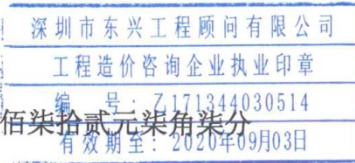 深圳市东兴工程顾问有限公司
工程造价咨询企业执业印章
编 号：Z171344030514
佰柒拾贰元柒角柒分
有效期至：2020年09月03日